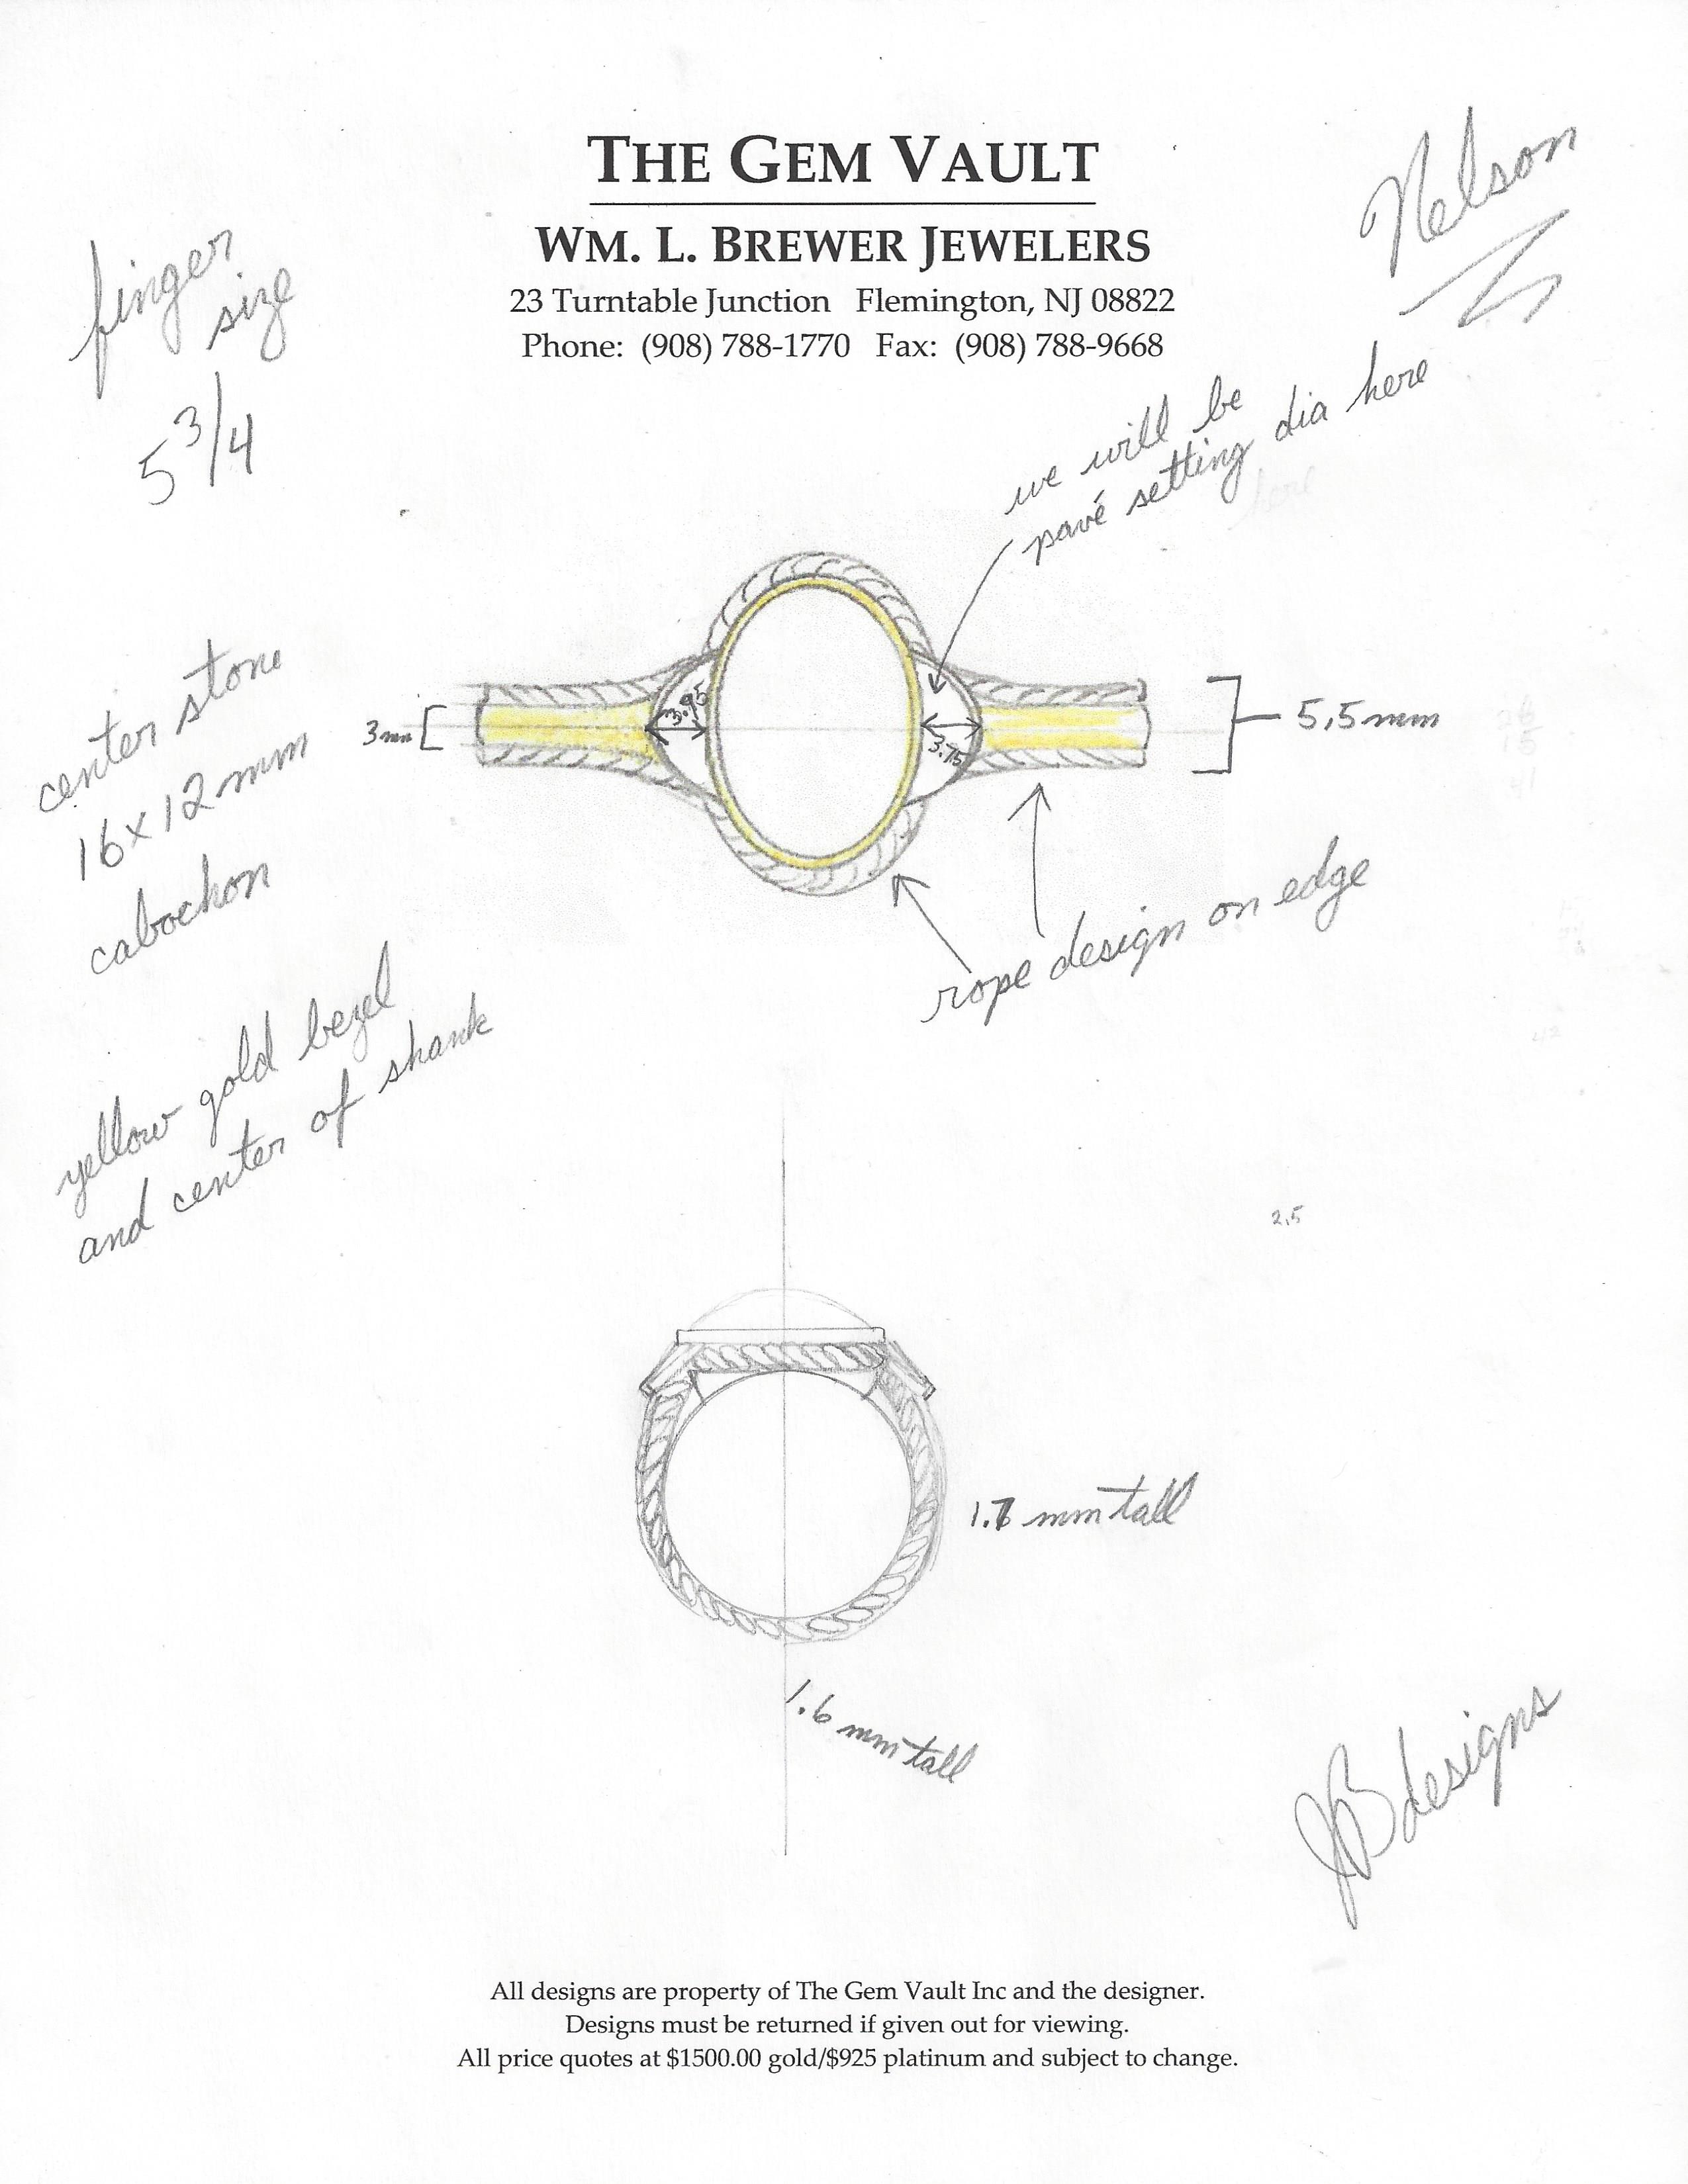 THE GEM VAULT
WM. L. BREWER JEWELERS
23 Turntable Junction Flemington, NJ 08822
Phone: (908) 788-1770 Fax: (908) 788-9668
Nelson
finger
size
5 3/4
we will be
pavé setting dia here
center stone
16x12mm
cabochon
3mm
3.95
3.75
5.5mm
rope design on edge
yellow gold bezel
and center of shank
2,5
1.7 mm tall
1.6 mm tall
JB designs
All designs are property of The Gem Vault Inc and the designer.
Designs must be returned if given out for viewing.
All price quotes at $1500.00 gold/$925 platinum and subject to change.